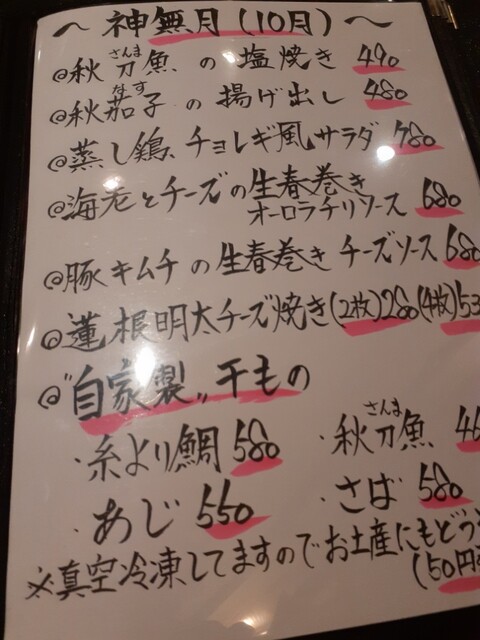 ～ 神無月 (10月) ～
@秋刀魚の塩焼き 490
さんま
@秋茄子の揚げ出し 480
なす
@蒸し鶏、チョレギ風サラダ 780
@海老とチーズの生春巻き
オーロラチリソース 680
@豚キムチの生春巻きチーズソース 680
@蓮根明太チーズ焼き(2枚)280(4枚)53
@"自家製"干もの
・糸より鯛 580
さんま
・秋刀魚 46
・あじ 550
・さば 580
※真空冷凍してますのでお土産にもどう
(50円